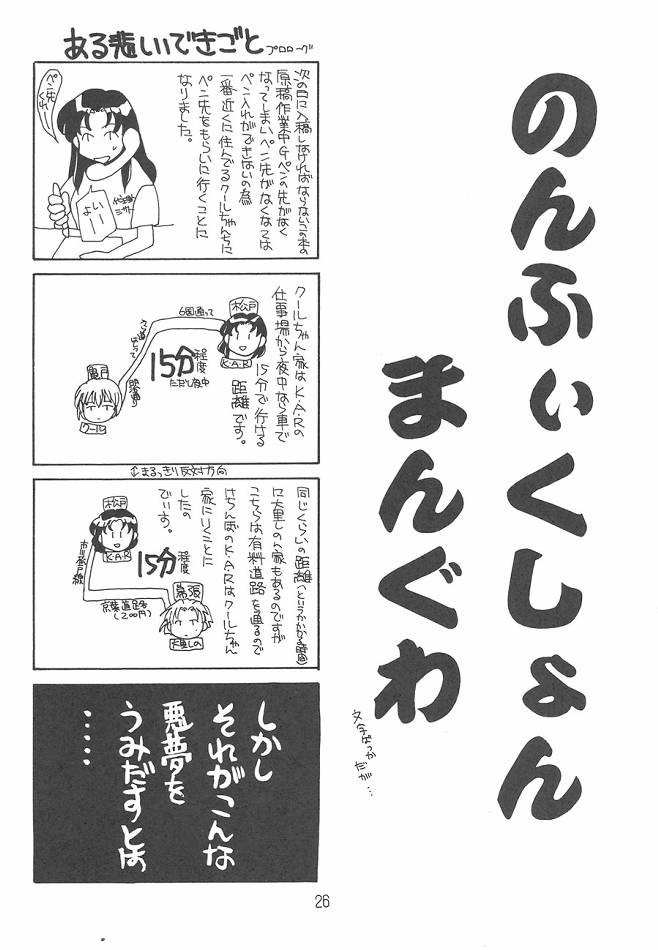 のんふぃくしょん
まんぐわ
文字ばっか
だが…
ある悲しいできごと
プロローグ
次の日に入稿しなければならないこの本の
原稿作業中Gペンの先がなく
なってしまいペン先がなくては
ペン入れができないの為
一番近くに住んでるクールちゃんちに
ペン先をもらいに行くことに
なりました。
ペン先
くれー
よい
クールちゃん家はK・A・Rの
仕事場から夜中なら車で
15分で行ける
距離です。
松戸
K・A・R
6国通って
15分程度
ただし夜中
亀戸
クール
↕まるっきり反対方向
同じくらいの距離(というかかかる時間)
に大里しのん家もあるのですが
こちらは有料道路を通るので
けちんぼのK・A・Rはクールちゃん
家にいくことに
したの
でいす。
松戸
K・A・R
15分程度
市川松戸線
京葉道路
(200円)
幕張
大里しの
しかし
それがこんな
悪夢を
うみだすとは
……
26